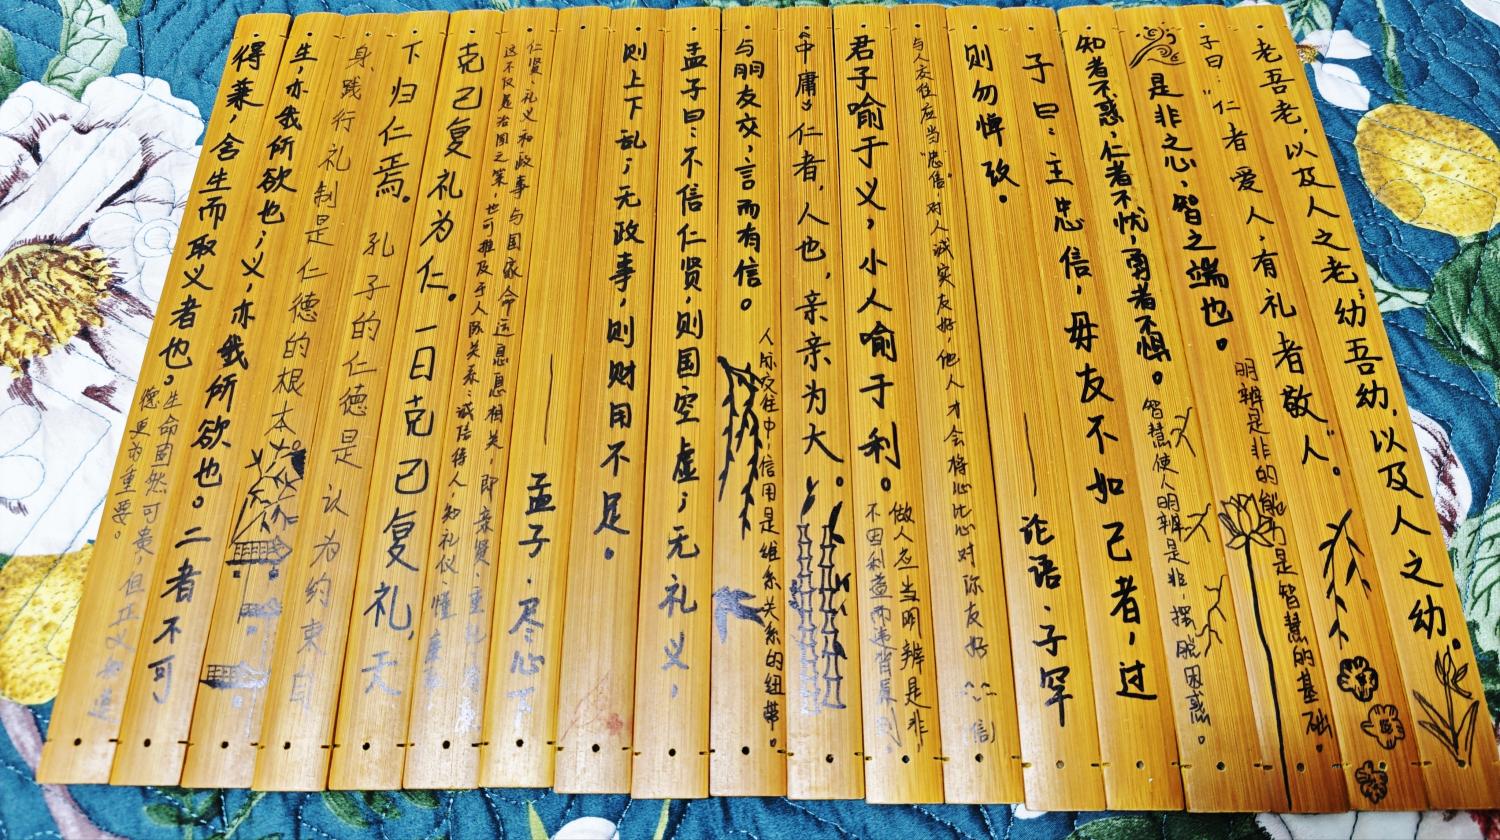 老吾老,以及人之老,幼吾幼,以及人之幼。
子曰:"仁者爱人,有礼者敬人。"
是非之心,智之端也。
明辨是非的能力是智慧的基础。
知者不惑,仁者不忧,勇者不惧。
智慧使人明辨是非,摆脱困惑。
子曰:主忠信,毋友不如己者,过
则勿惮改。
——论语·子罕
与人交往应当"忠信",对人诚实友好,他人才会将心比心对你友好
信
君子喻于义,小人喻于利。
做人应当明辨是非,
不因利益而违背原则。
《中庸》仁者,人也,亲亲为大。
与朋友交,言而有信。
人际交往中,信用是维系关系的纽带。
孟子曰:不信仁贤,则国空虚;无礼义,
则上下乱;无政事,则财用不足。
——孟子·尽心下
仁贤、礼义和政事与国家命运息息相关,即亲贤、重礼、
这不仅是治国之策,也可推及于人际关系:诚信待人,知礼仪,懂
克己复礼为仁。一日克己复礼,天
下归仁焉。
孔子的仁德是认为约束自
身践行礼制是仁德的根本
生,亦我所欲也;义,亦我所欲也。二者不可
得兼,舍生而取义者也。
生命固然可贵,但正义和道
德更为重要。